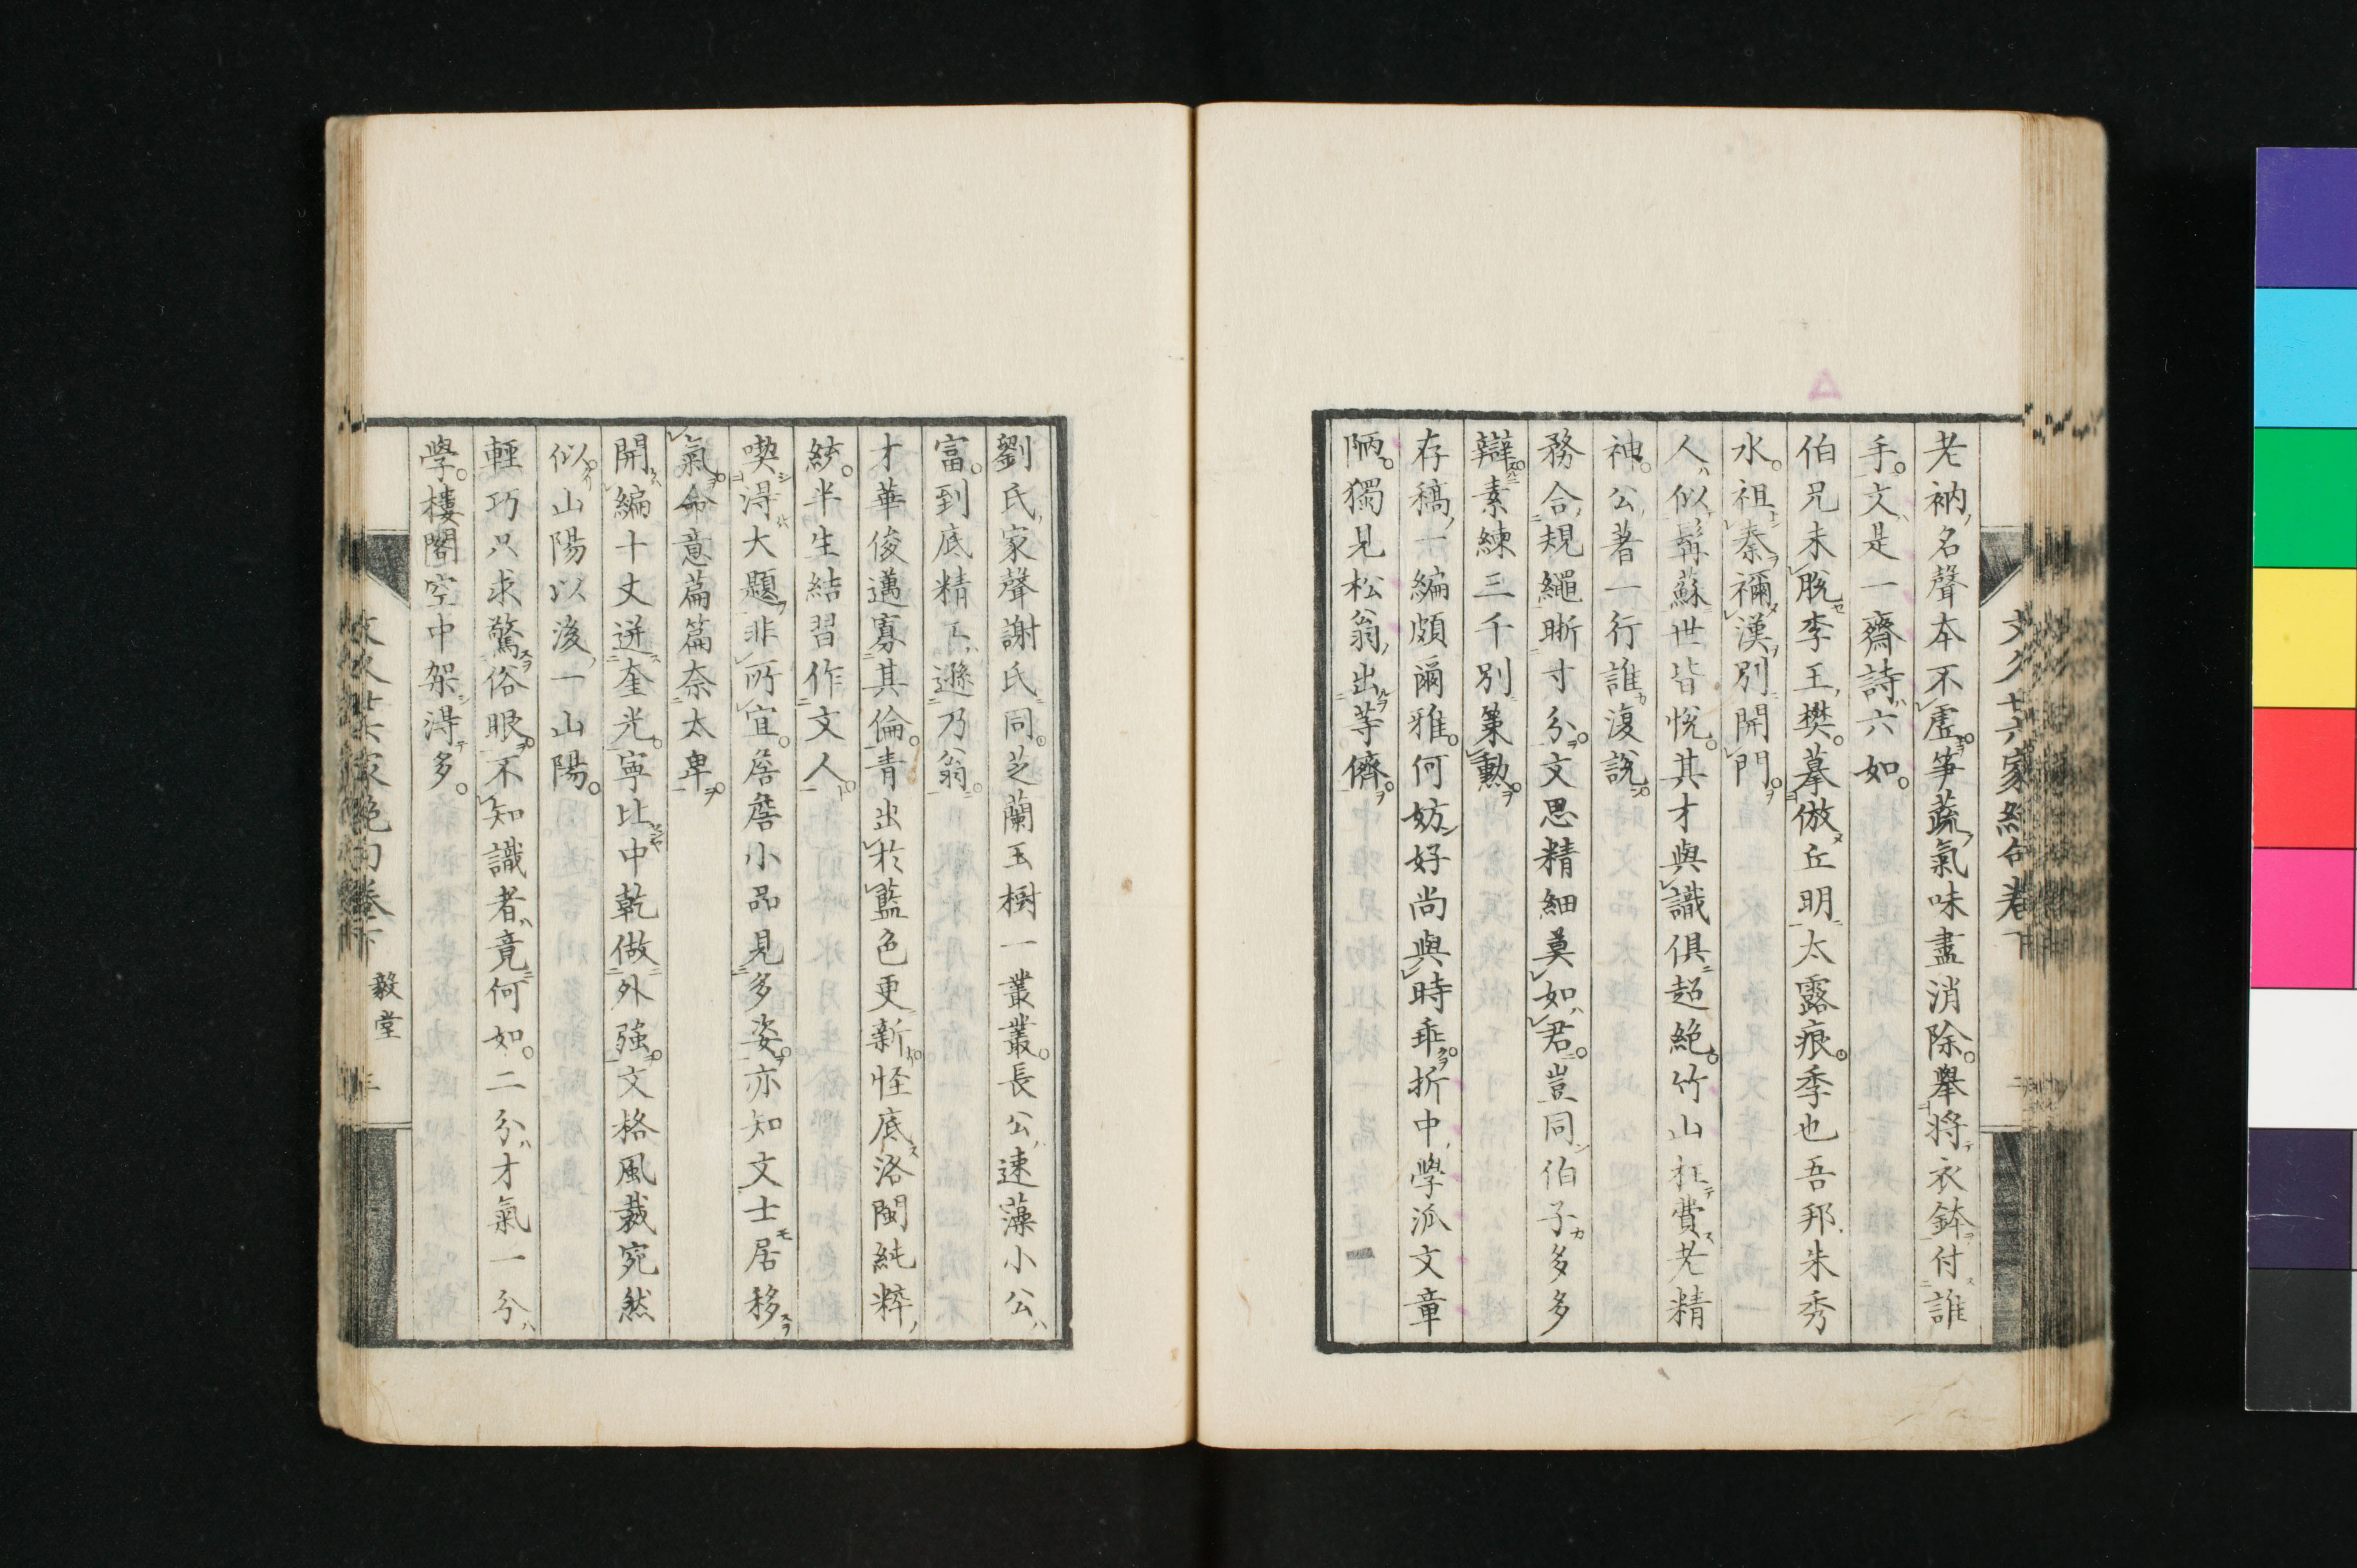 文久廿六家絶句卷下
老衲名聲本不虛。筍蔬氣味盡消除。舉將衣鉢付誰
手。文是一齋詩六如。
伯兄未脫李王樊。摹倣丘明太露痕。季也吾邦朱秀
水。祖秦禰漢別開門。
人似髯蘇世皆悅。其才與識俱超絕。竹山枉費老精
神。公著一行誰復說。
務合規繩晣寸分。文思精細莫如君。豈同伯子多多
辯。素練三千別策勳。
存稿一編頗爾雅。何妨好尚與時乖。折中學派文章
陋。獨見松翁出等儕。
劉氏家聲謝氏同。芝蘭玉樹一叢叢。長公速藻小公
富。到底精工遜乃翁。
才華俊邁寡其倫。青出於藍色更新。恠底洛閩純粹
統。半生結習作文人。
喫得大題非所宜。詹詹小品見多姿。亦知文士居移
氣。命意篇篇奈太卑。
開編十丈迸奎光。寧比中乾做外强。文格風裁宛然
似。山陽以後一山陽。
輕巧只求驚俗眼。不知識者竟何如。二分才氣一分
學。樓閣空中架得多。
文久廿六家絶句卷下
毅堂
三